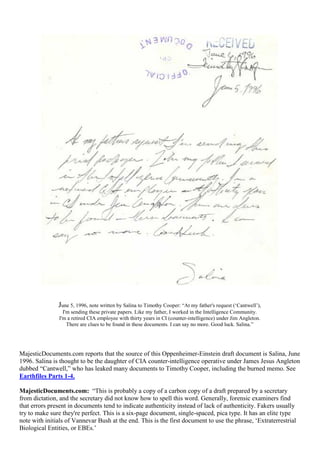 DOCUMENT
OFFICIAL
RECEIVED
June 6, 1996
June 5, 1996
At my fathers request I'm sending
private papers. Like my father I worked
in the Intelligence Community. I'm a
retired CIA employee with thirty years
in CI under Jim Angleton. There are clues
to be found in these documents. I can
say no more. Good luck.
Salina
June 5, 1996, note written by Salina to Timothy Cooper: “At my father's request (‘Cantwell’),
I'm sending these private papers. Like my father, I worked in the Intelligence Community.
I'm a retired CIA employee with thirty years in CI (counter-intelligence) under Jim Angleton.
There are clues to be found in these documents. I can say no more. Good luck. Salina.”
MajesticDocuments.com reports that the source of this Oppenheimer-Einstein draft document is Salina, June
1996. Salina is thought to be the daughter of CIA counter-intelligence operative under James Jesus Angleton
dubbed “Cantwell,” who has leaked many documents to Timothy Cooper, including the burned memo. See
Earthfiles Parts 1-4.
MajesticDocuments.com: “This is probably a copy of a carbon copy of a draft prepared by a secretary
from dictation, and the secretary did not know how to spell this word. Generally, forensic examiners find
that errors present in documents tend to indicate authenticity instead of lack of authenticity. Fakers usually
try to make sure they're perfect. This is a six-page document, single-spaced, pica type. It has an elite type
note with initials of Vannevar Bush at the end. This is the first document to use the phrase, ‘Extraterrestrial
Biological Entities, or EBEs.’